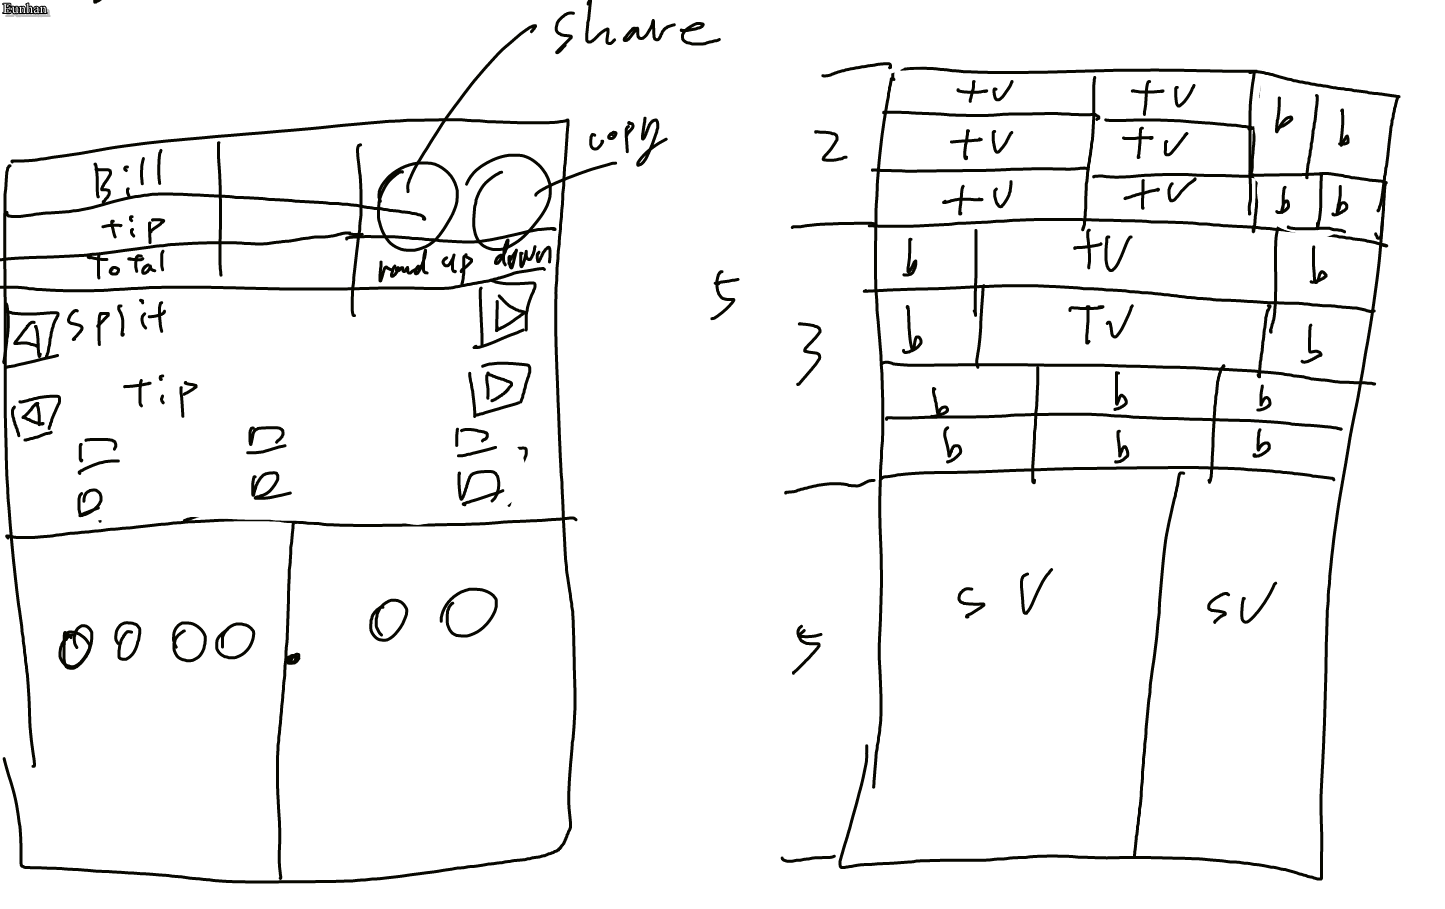 Eunhan
share
copy
Bill
tip
Total
round up down
split
tip
2
+v +v b b
+v +v
+v +v b b
5
3
b +v b
b TV b
b b b
b b b
5
s V sv